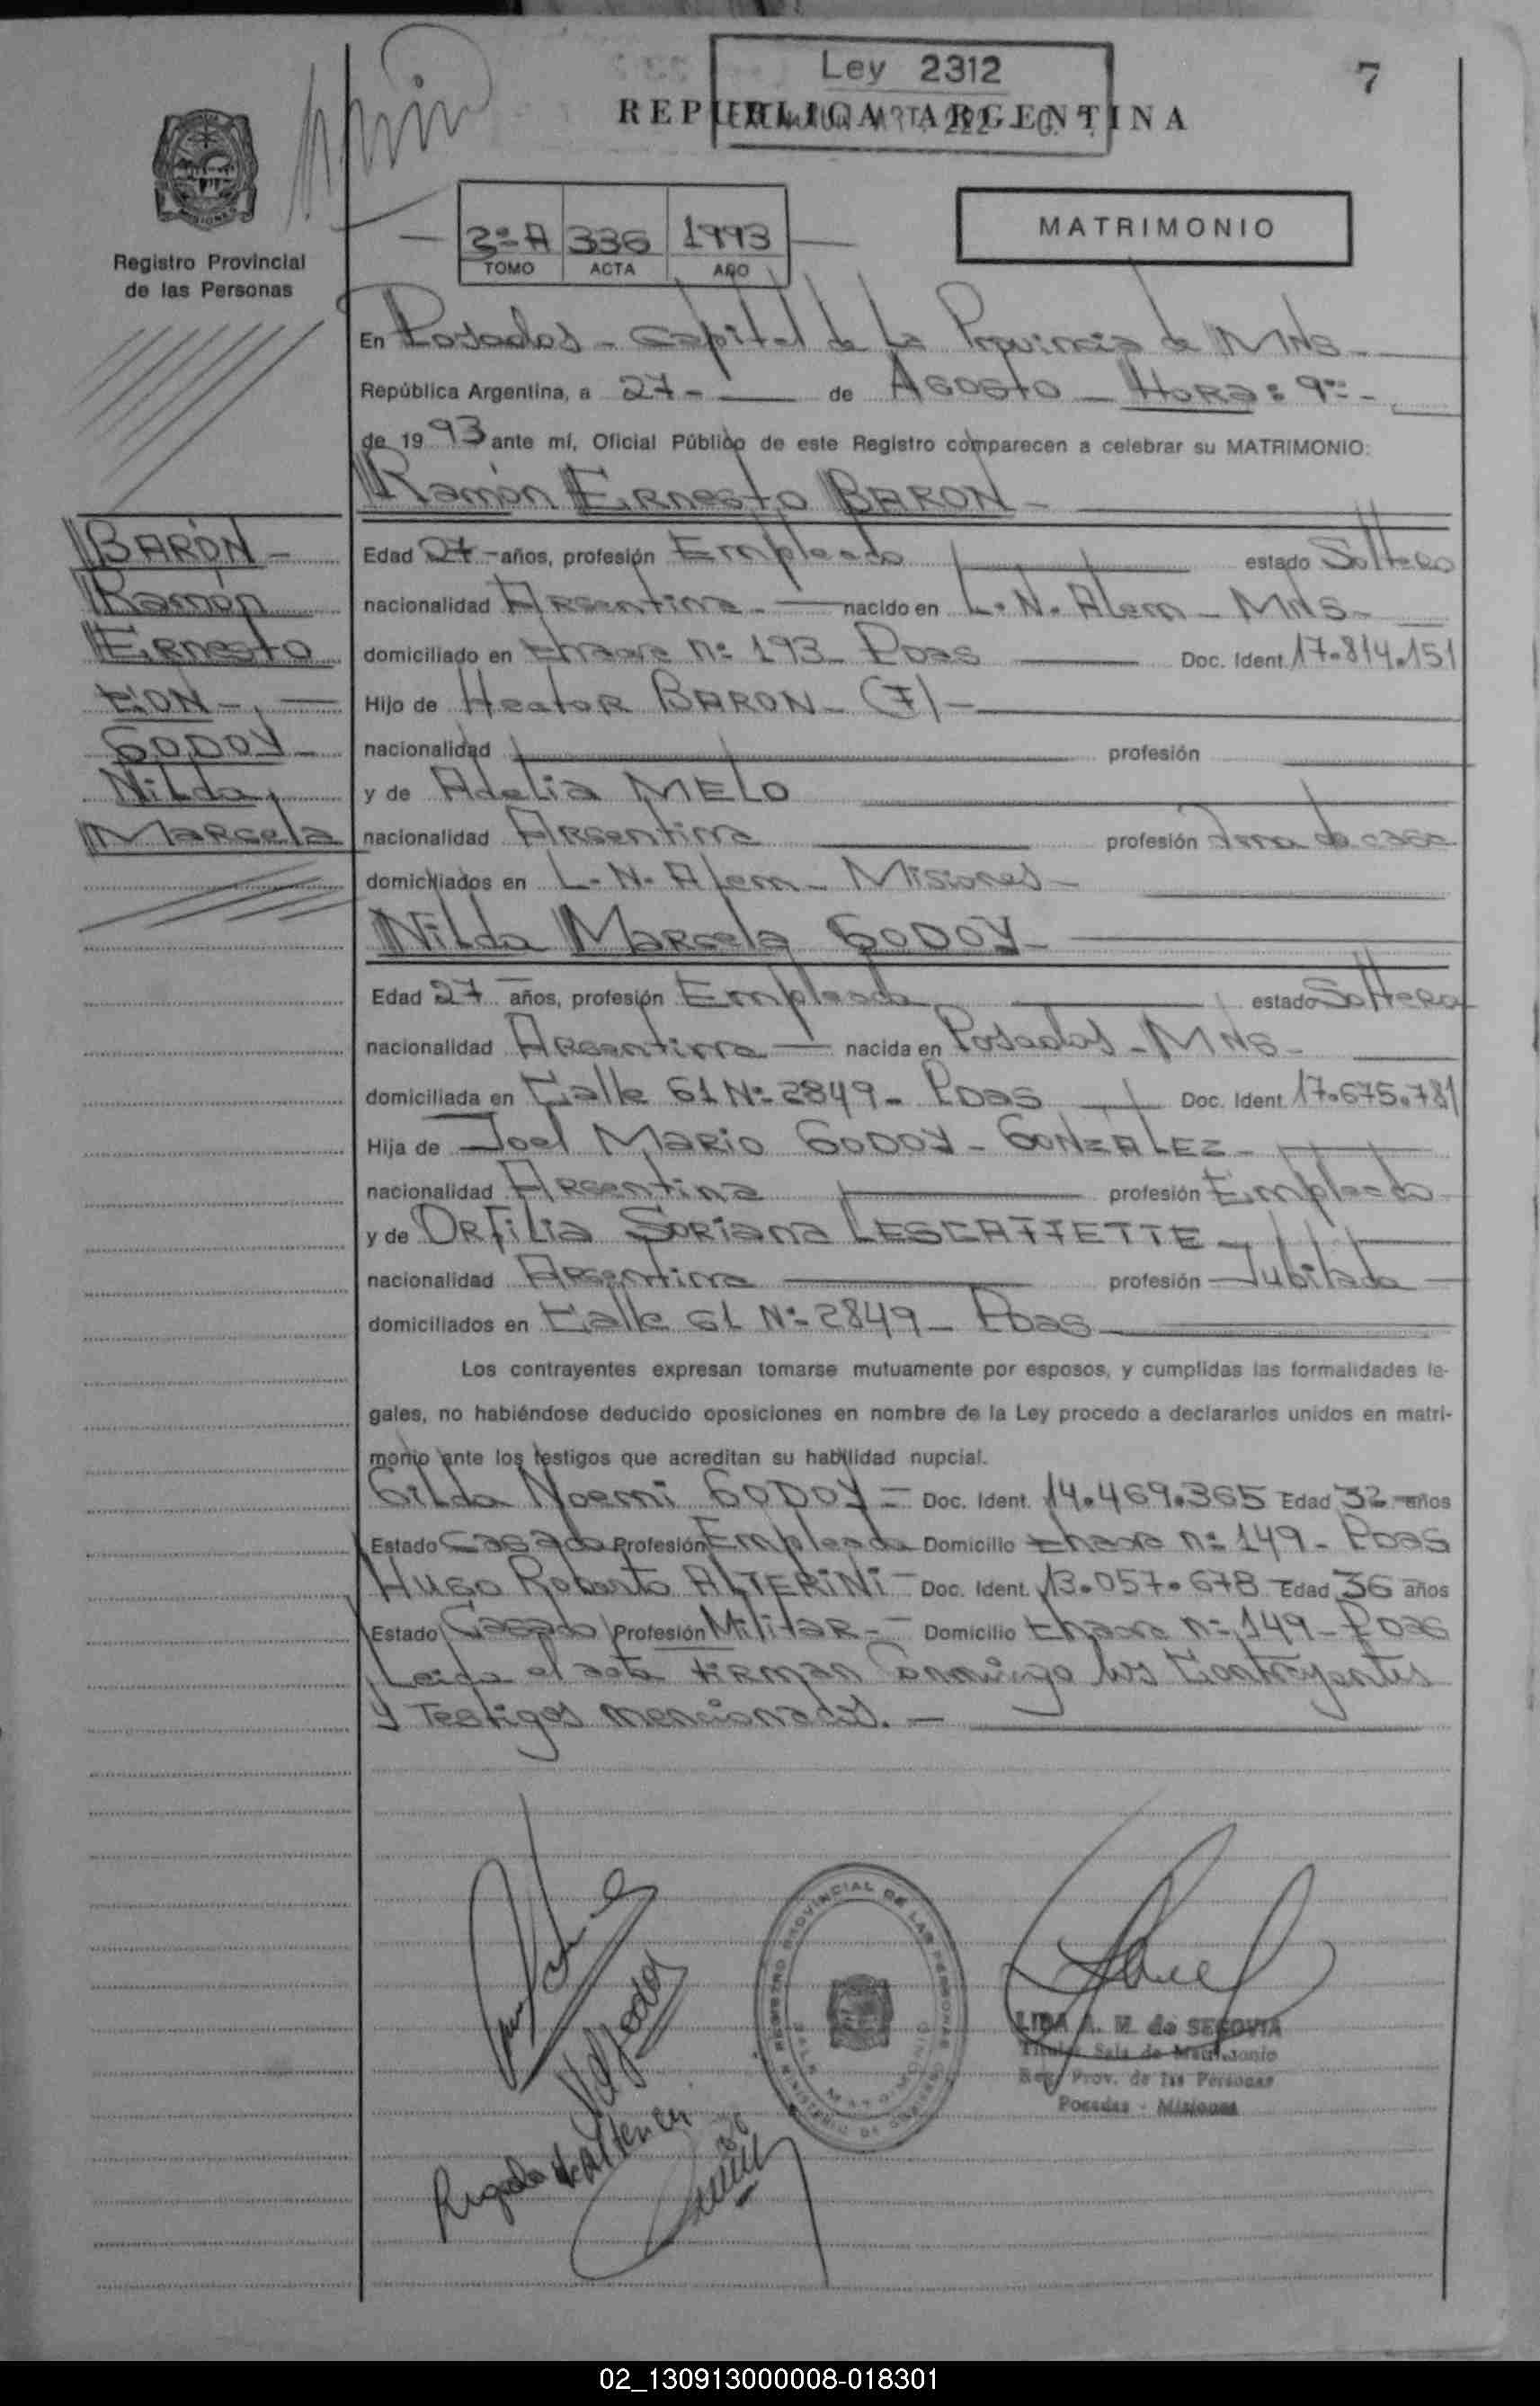 Ley 2312
7
REPUBLICA ARGENTINA
MATRIMONIO
2º A 336 1993
TOMO ACTA AÑO
Registro Provincial
de las Personas
En Posadas - Capital de La Provincia de Mnes -
República Argentina, a 27 - de Agosto - Hora: 9
de 1993 ante mí, Oficial Público de este Registro comparecen a celebrar su MATRIMONIO:
Ramón Ernesto BARON -
BARÓN -
Ramón
Ernesto
CON -
GODOY -
Nilda,
Marcela
Edad 27 - años, profesión Empleado estado Soltero
nacionalidad Argentina - nacido en L. N. Alem - Mnes -
domiciliado en Chacra nº 193 - Pdas Doc. Ident. 17.814.151
Hijo de Hector BARON - (F) -
nacionalidad profesión
y de Adelia MELO
nacionalidad Argentina profesión Ama de casa
domiciliados en L. N. Alem - Misiones -
Nilda Marcela GODOY -
Edad 27 años, profesión Empleada estado Soltera
nacionalidad Argentina - nacida en Posadas - Mnes -
domiciliada en Calle 61 Nº 2849 - Pdas Doc. Ident. 17.675.781
Hija de Joel Mario GODOY - GONZALEZ -
nacionalidad Argentina profesión Empleado
y de Orfilia Soriana LESCAFFETTE -
nacionalidad Argentina profesión Jubilada
domiciliados en Calle 61 Nº 2849 - Pdas
Los contrayentes expresan tomarse mutuamente por esposos, y cumplidas las formalidades le-
gales, no habiéndose deducido oposiciones en nombre de la Ley procedo a declararlos unidos en matri-
monio ante los testigos que acreditan su habilidad nupcial.
Gilda Noemi GODOY - Doc. Ident. 14.469.365 Edad 32 años
Estado Casada Profesión Empleada Domicilio Chacra nº 149 - Pdas
Hugo Roberto ALTERINI - Doc. Ident. 13.057.678 Edad 36 años
Estado Casado Profesión Militar - Domicilio Chacra nº 149 - Pdas
Leida el acta firman Conmigo los Contrayentes
y Testigos mencionados. -
REGISTRO PROVINCIAL DE LAS PERSONAS
MINISTERIO DE GOBIERNO
SALA MATRIMONIO
LIDA A. M. de SEGOVIA
Titular Sala de Matrimonio
Reg. Prov. de las Personas
Posadas - Misiones
02_130913000008-018301